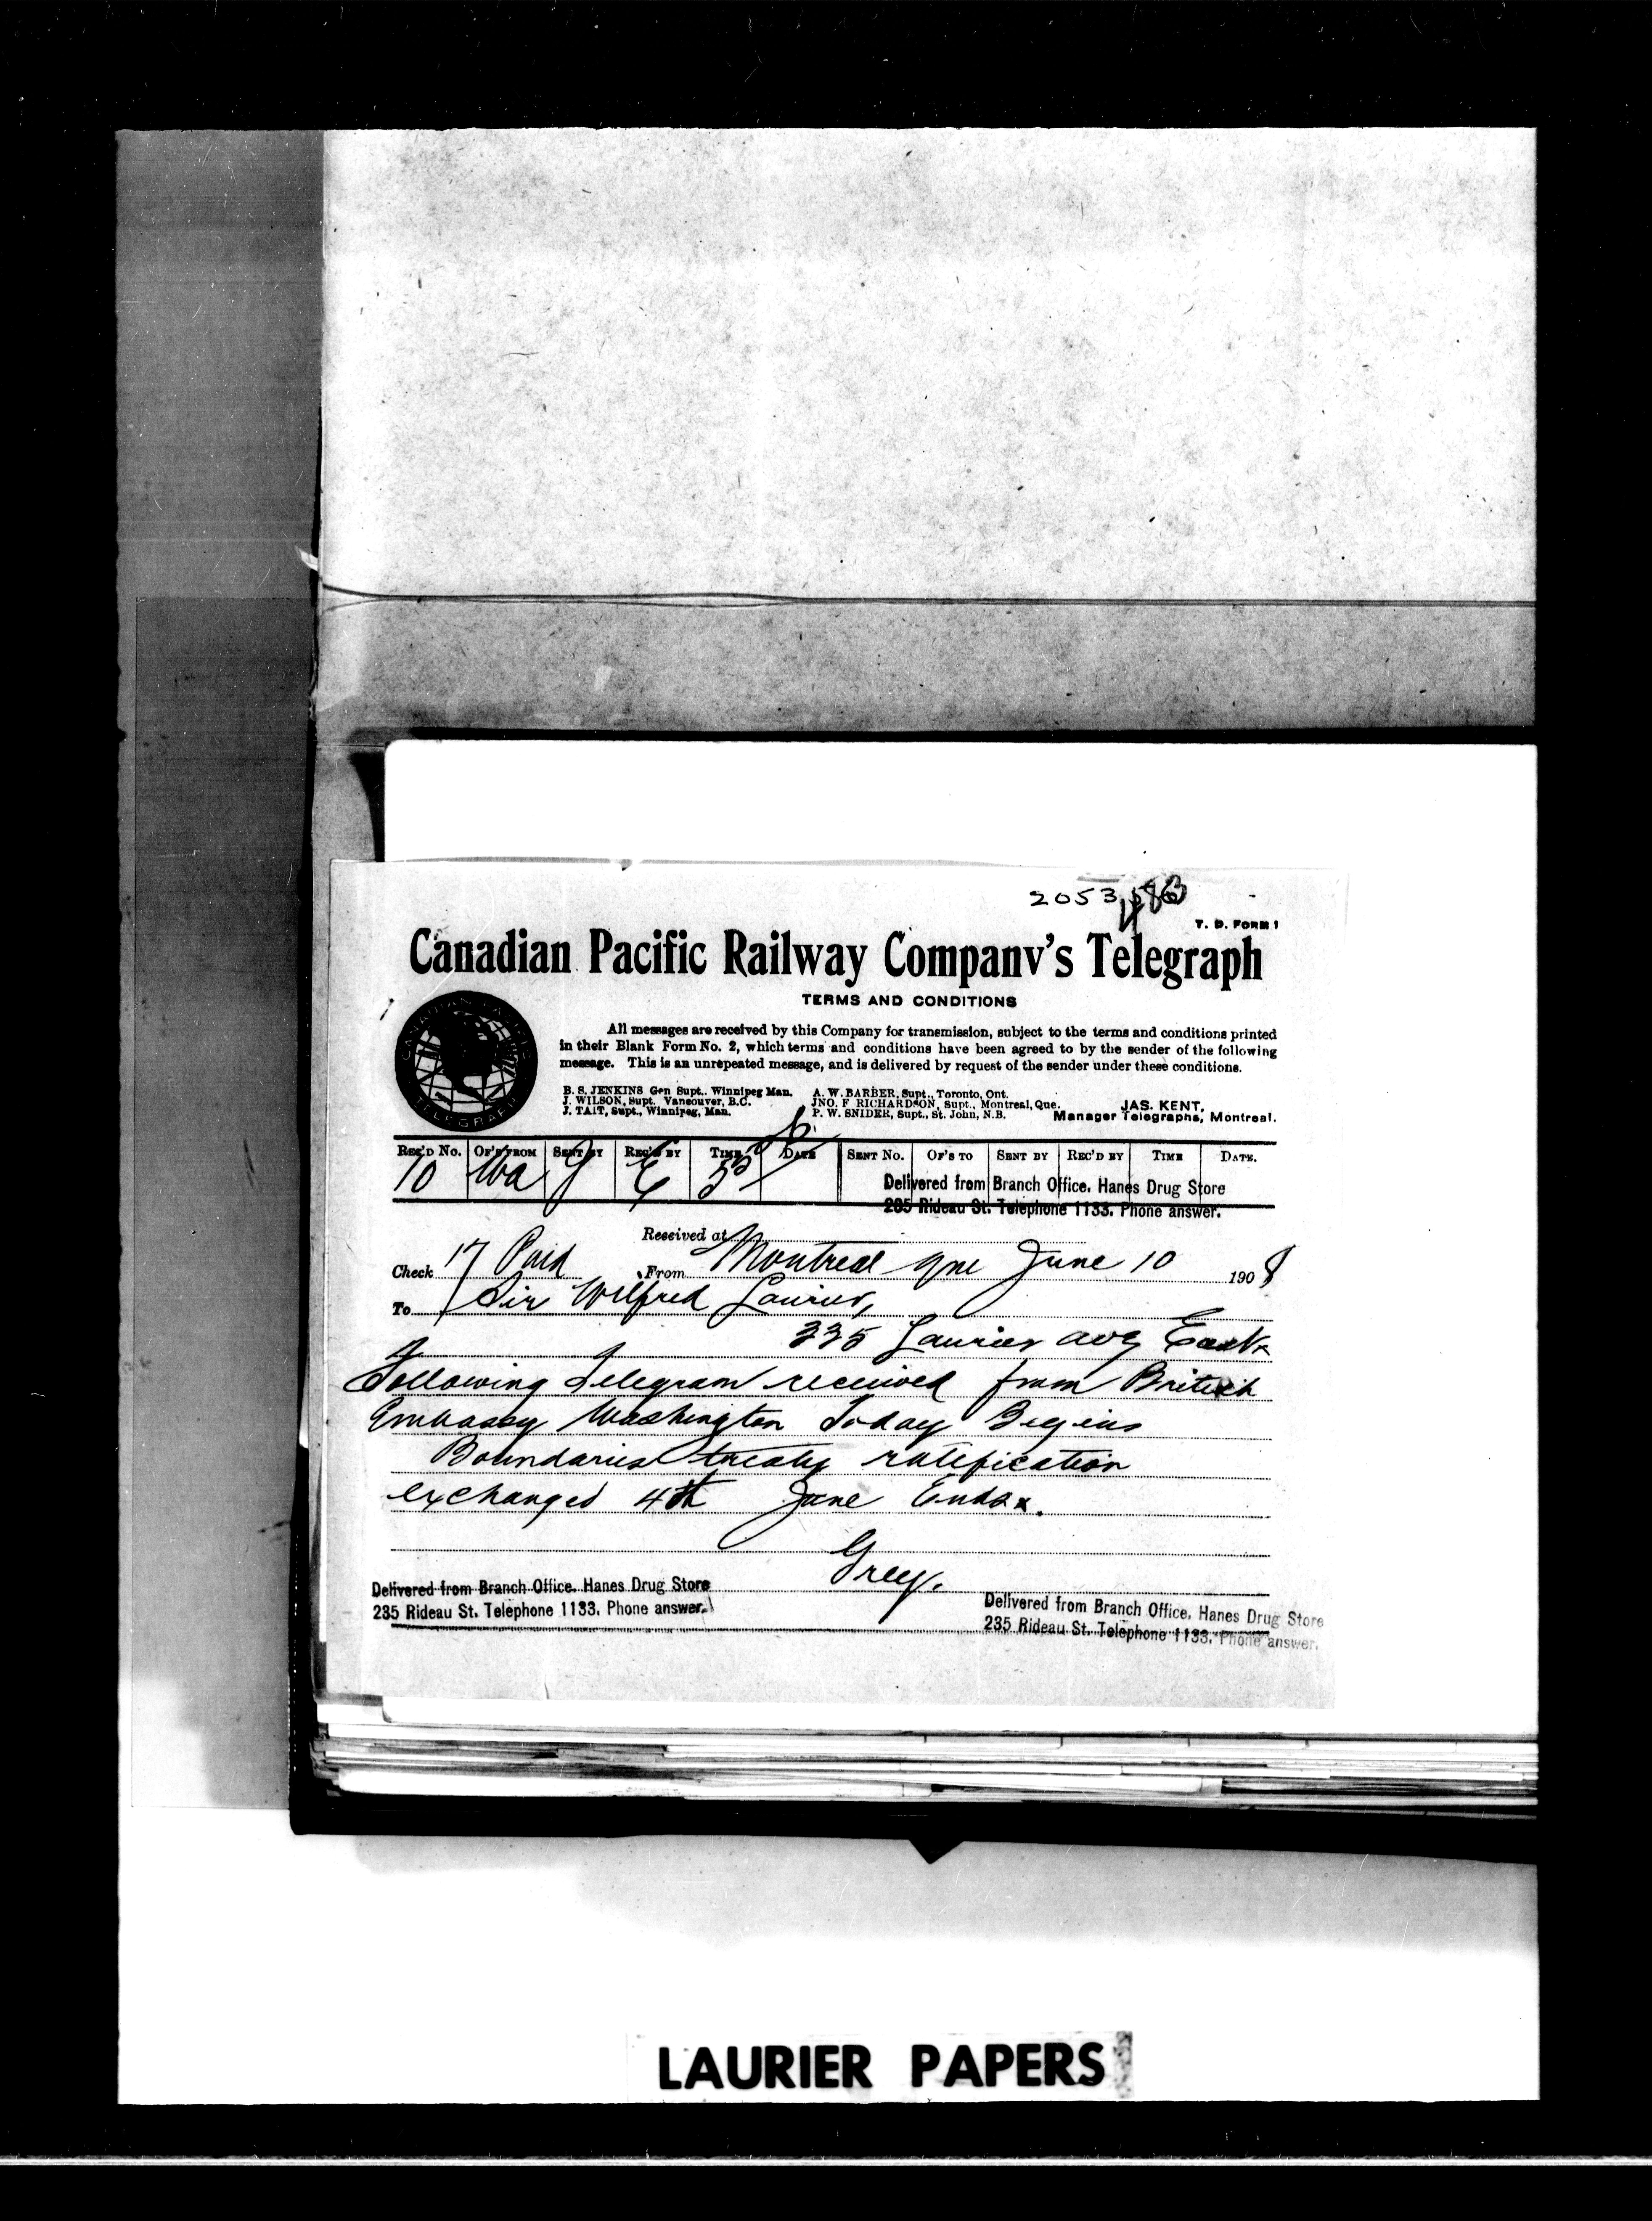 2053
T. D. FORM 1
Canadian Pacific Railway Company's Telegraph
TERMS AND CONDITIONS
CANADIAN PACIFIC
TELEGRAPH
All messages are received by this Company for transmission, subject to the terms and conditions printed
in their Blank Form No. 2, which terms and conditions have been agreed to by the sender of the following
message. This is an unrepeated message, and is delivered by request of the sender under these conditions.
B. S. JENKINS Gen Supt., Winnipeg Man. A. W. BARBER, Supt., Toronto, Ont.
J. WILSON, Supt. Vancouver, B.C. JNO. F RICHARDSON, Supt., Montreal, Que. JAS. KENT,
J. TAIT, Supt., Winnipeg, Man. P. W. SNIDER, Supt., St. John, N.B. Manager Telegraphs, Montreal.
REC'D No. OF'S FROM SENT BY REC'D BY TIME DATE SENT No. OF'S TO SENT BY REC'D BY TIME DATE.
10 Wa G
Delivered from Branch Office. Hanes Drug Store
235 Rideau St. Telephone 1133. Phone answer.
Received at
Check 17 Paid From Montreal Que June 10 1908
To Sir Wilfred Laurier,
335 Laurier ave East
Following telegram received from British
Embassy Washington Today Begins
Boundaries treaty ratification
exchanged 4th June Ends x.
Grey.
Delivered from Branch Office. Hanes Drug Store
235 Rideau St. Telephone 1133. Phone answer.
Delivered from Branch Office. Hanes Drug Store
235 Rideau St. Telephone 1133. Phone answer.
LAURIER PAPERS